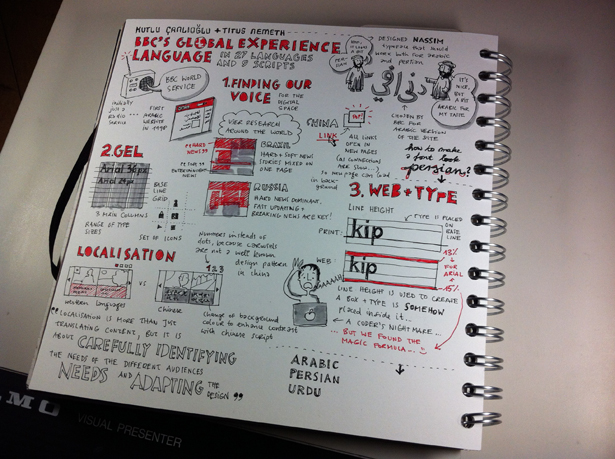 KUTLU ÇANLIOĞLU + TITUS NEMETH
BBC'S GLOBAL EXPERIENCE
LANGUAGE IN 27 LANGUAGES
AND 9 SCRIPTS
BBC WORLD
SERVICE
initially
just a
radio
service
FIRST
ARABIC
WEBSITE
IN 1998
1. FINDING OUR
VOICE FOR THE
DIGITAL
SPACE
USER RESEARCH
AROUND THE WORLD
"HARD
NEWS"
BRAZIL
HARD + SOFT NEWS
STORIES MIXED IN
ONE PAGE
RUSSIA
HARD NEWS DOMINANT,
FAST UPDATING +
BREAKING NEWS ARE KEY!
CHINA
LINK
ALL LINKS
OPEN IN
NEW PAGES
(AS CONNECTIONS
ARE SLOW...)
so new page can load
in back-
ground
DESIGNED NASSIM
typeface that should
work both for arabic
and persian
PER-
SIAN
IT'S
NICE,
BUT A
BIT
ARABIC FOR
MY TASTE
CHOSEN BY
BBC FOR
ARABIC VERSION
OF THE SITE
how to make
a font look
persian?
2. GEL
Arial 36px
Arial 24px
BASE
LINE
GRID
3 MAIN COLUMNS
RANGE OF TYPE
SIZES
SET OF ICONS
LOCALISATION
western languages
VS
Chinese
Numbers instead of
dots, because carousels
are not a well known
design pattern
in china
1 2 3
change of background
colour to enhance contrast
with chinese script
"LOCALISATION IS MORE THAN JUST
TRANSLATING CONTENT, BUT IT IS
ABOUT CAREFULLY IDENTIFYING
THE NEEDS OF THE DIFFERENT AUDIENCES
NEEDS AND ADAPTING THE
DESIGN"
3. WEB + TYPE
LINE HEIGHT
TYPE IS PLACED
ON BASE
LINE
PRINT:
kip
WEB:
kip
13%
FOR
ARIAL
15%
LINE HEIGHT IS USED TO CREATE
A BOX + TYPE IS SOMEHOW
placed inside it...
A CODER'S NIGHTMARE...
... BUT WE FOUND THE
MAGIC FORMULA...
ARABIC
PERSIAN
URDU
VISUAL PRESENTER